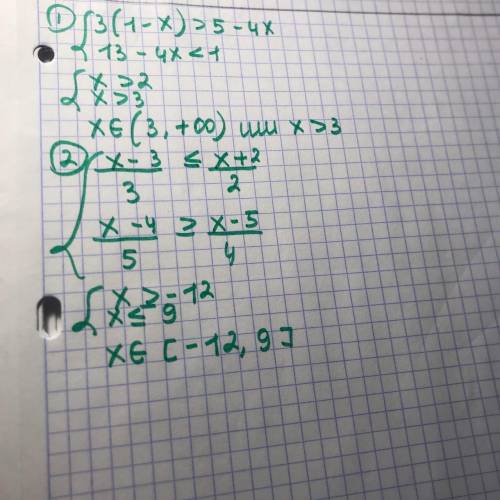 ① { 3(1-x) > 5-4x
13-4x < 1
{ x > 2
x > 3
x ∈ (3, +∞) или x > 3
② { x-3/3 ≤ x+2/2
x-4/5 ≥ x-5/4
{ x ≥ -12
x ≤ 9
x ∈ [-12, 9]